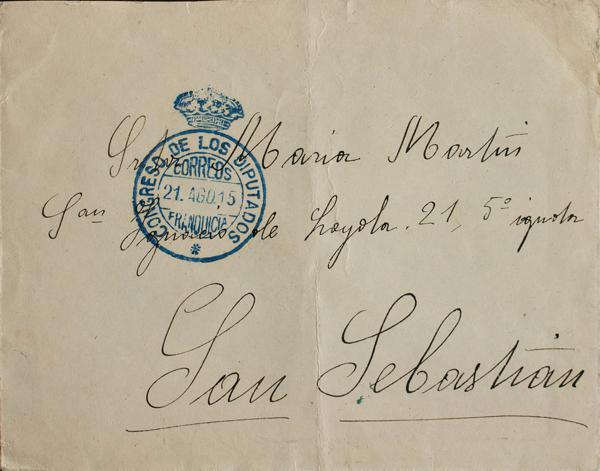 CONGRESO DE LOS DIPUTADOS
CORREOS
21. AGO. 15
FRANQUICIA
*
Srta Maria Martin
San Ignacio de Loyola. 21, 5º izqda
San Sebastián